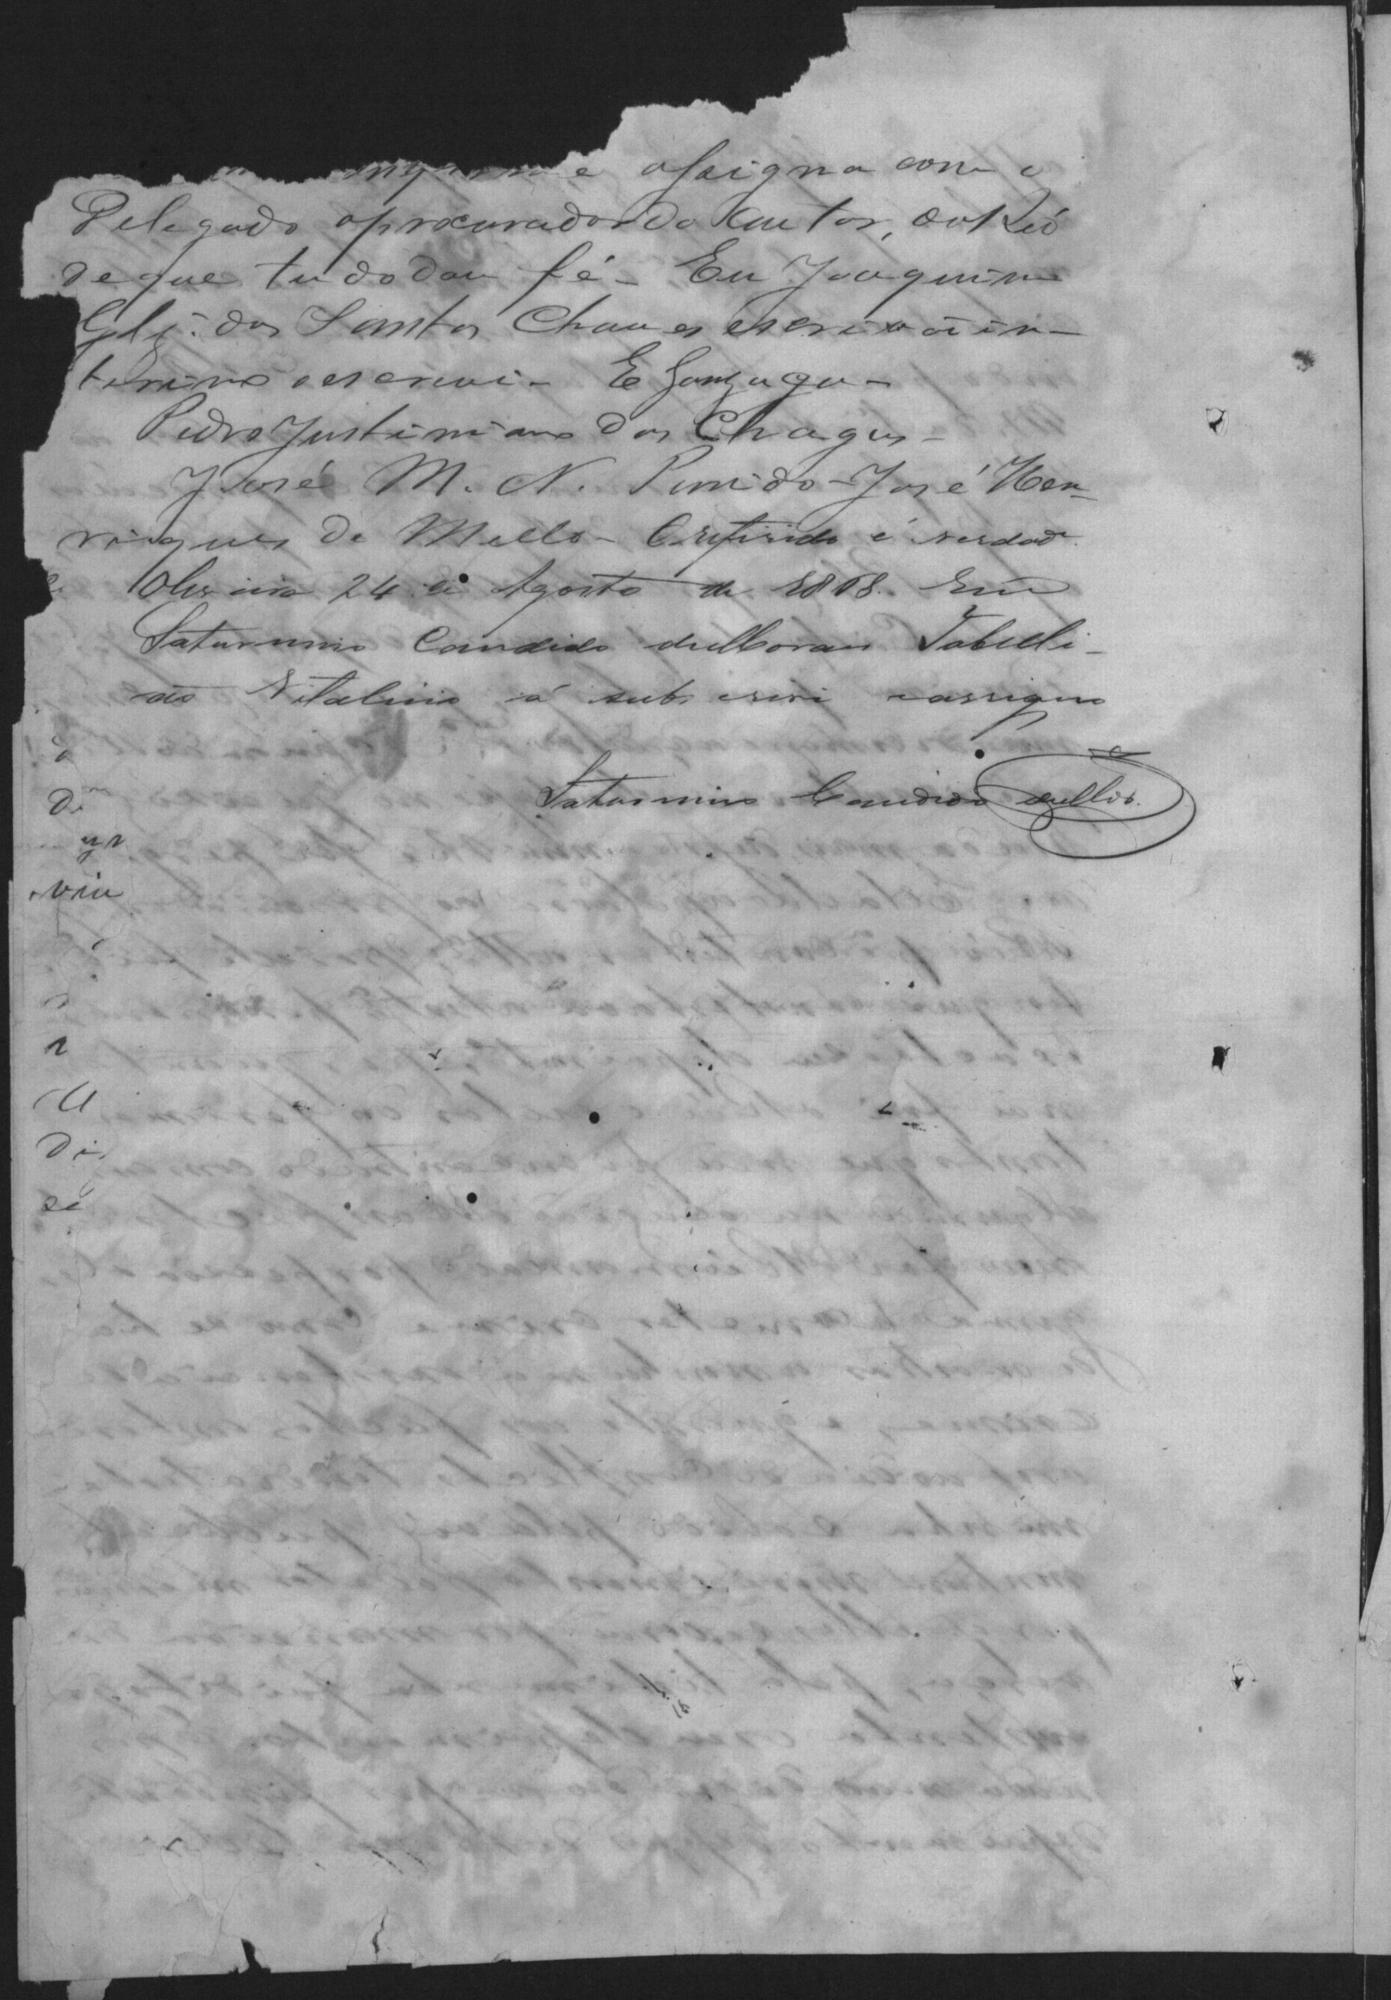 e assigna com o
Delegado o procurador do autor, eo Reó
de que tudo dou fé - Eu Joaquim
Glz. dos Santos Chaves escrivão in-
terino o escrevi - E Gonzaga -
Pedro Justiniano dos Chagas -
José M. N. Penido - José Hen-
riques de Mello - O referido é verdade.
Oliveira 24 de Agosto de 1868. Eu
Saturnino Candido de Moraes Tabelli-
ão Vitalicio o subscrevi e assigno
Saturnino Candido de Mor.